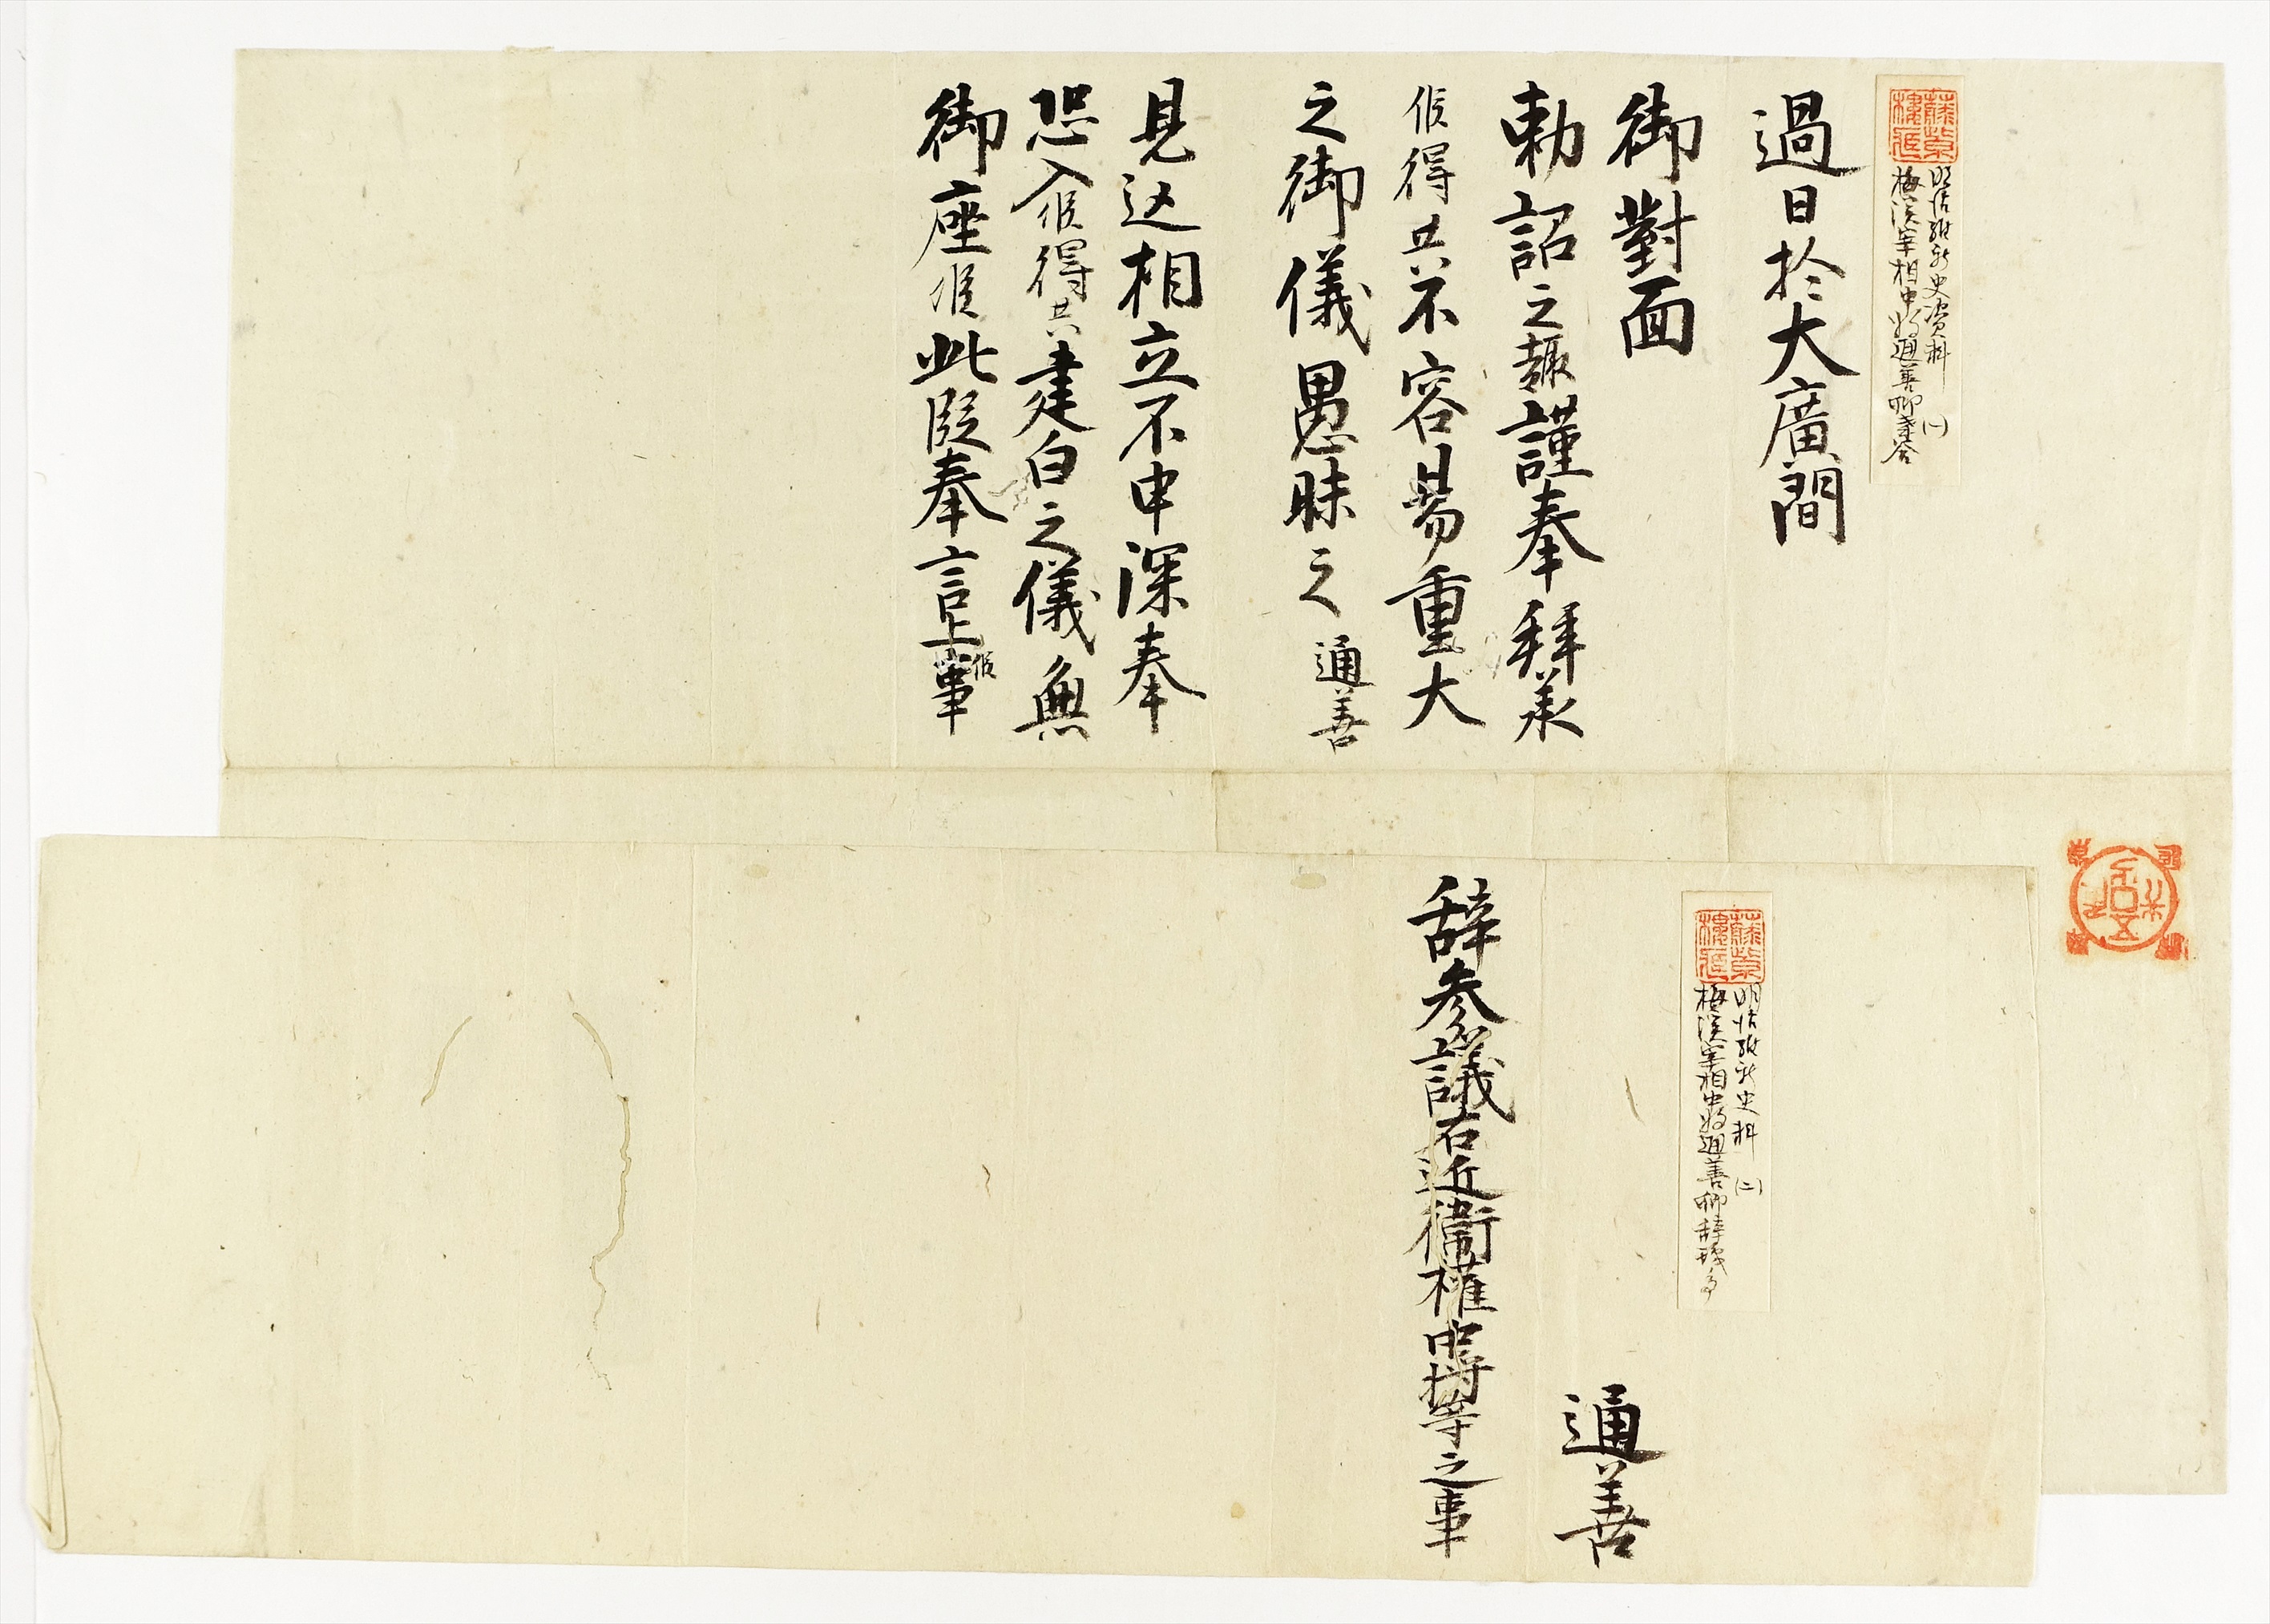 明治維新史資料 (一)
梅溪宰相中将通善卿奉答
過日於大廣間
御對面
勅詔之趣謹奉拜承
候得共不容易重大
之御儀愚昧之通善
見込相立不申深奉
恐入候得共建白之儀無
御座候此段奉言上候事
明治維新史料 (二)
梅溪宰相中将通善卿辞職
通善
辞参議右近衛権中将等之事